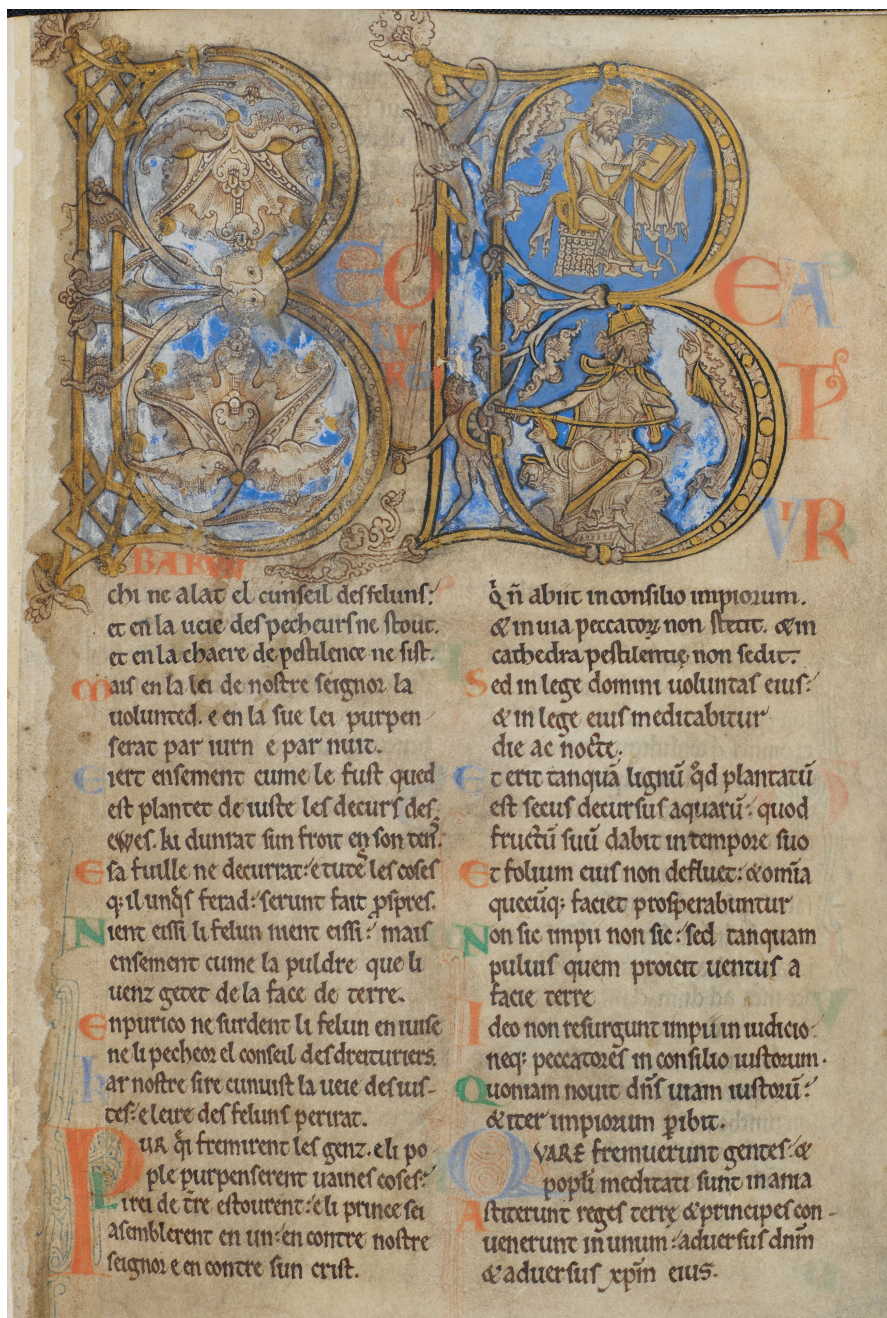 BEO
NV
RE
BARVN
chi ne alat el cunseil des feluns:
et en la ueie des pecheurs ne stout.
et en la chaere de pestilence ne sist.
Mais en la lei de nostre seignor la
uolunted. e en la sue lei purpen
serat par iurn e par nuit.
Eiert ensement cume le fust qued
est plantet de iuste les decurs des
ewes. ki dunrat sun froit en son tens.
E sa fuille ne decurrat: e tutes les coses
q; il unq̄s ferad: serunt fait ꝓspres.
Nient eissi li felun nient eissi: mais
ensement cume la puldre que li
uenz getet de la face de terre.
Enpurico ne surdent li felun en iuise
ne li pecheor el conseil des dreituriers.
kar nostre sire cunuist la ueie des uis-
tes: e leire des feluns perirat.
PUR q̇i fremirent les genz. e li po
ple purpenserent uaines coses:
Li rei de tr̄e estourent: e li prince sei
asemblerent en un: en contre nostre
seignor e en contre sun crist.
BEA
T
VR
q̇ n̄ abiit in consilio impiorum.
& in uia peccatoꝝ non stetit. & in
cathedra pestilentię non sedit:
Sed in lege domini uoluntas eius:
& in lege eius meditabitur
die ac nocte.
Et erit tanquā lignū q̇d plantatū
est secus decursus aquarū: quod
fructū suū dabit in tempore suo
Et folium eius non defluet: & om̄ia
quecūq; faciet prosperabuntur
Non sic impii non sic: sed tanquam
puluis quem proicit uentus a
facie terre
Ideo non resurgunt impii in iudicio:
neq; peccatores in consilio iustorum.
Quoniam nouit dn̄s uiam iustorū:
& iter impiorum ꝑibit.
QVARE fremuerunt gentes: &
popl̄i meditati sunt inania
Astiterunt reges terrę & principes con-
uenerunt in unum: aduersus dn̄m
& aduersus xp̄m eius.